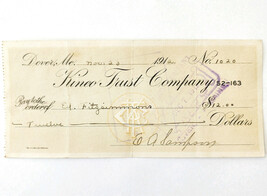 Dover, Me. Nov 23 1912 No. 1020
Kineo Trust Company 52-163
Pay to the order of Fitzsimmons $12.00
Twelve Dollars
E A Sampson